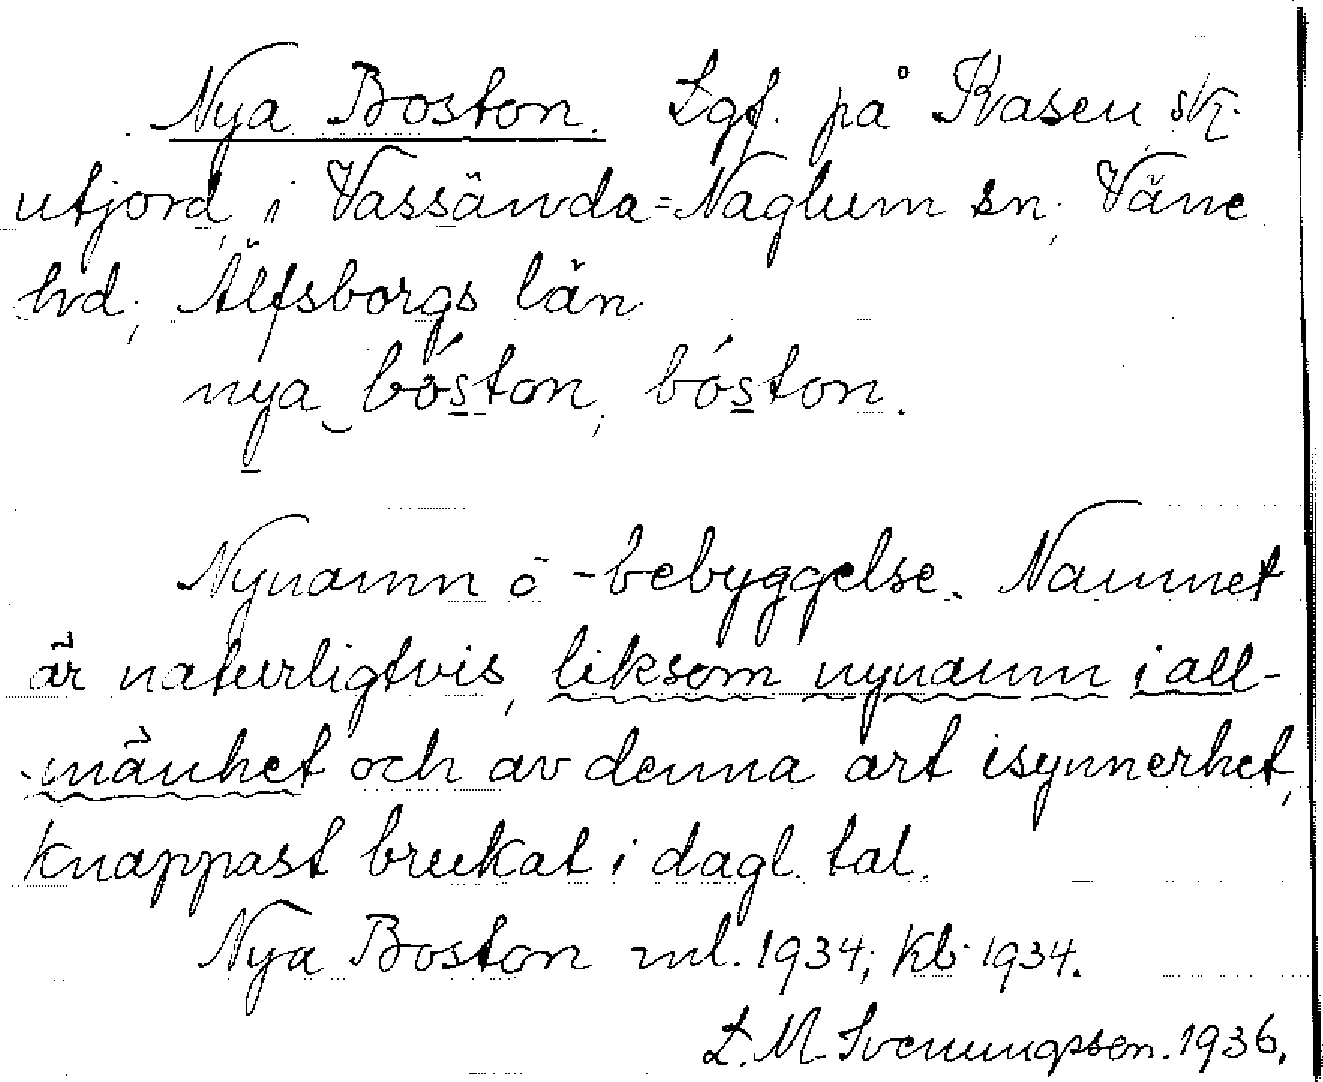 Nya Boston. Lgf. på Kasen sk.
utjord, i Vassända=Naglum sn, Väne
hd, Älfsborgs län
nya bóston, bóston.
Nynamn o -bebyggelse. Namnet
är naturligtvis, liksom nynamn i all-
mänhet och av denna art isynnerhet,
knappast brukat i dagl. tal.
Nya Boston ml. 1934; Kb 1934.
L. M. Svenungsson. 1936.